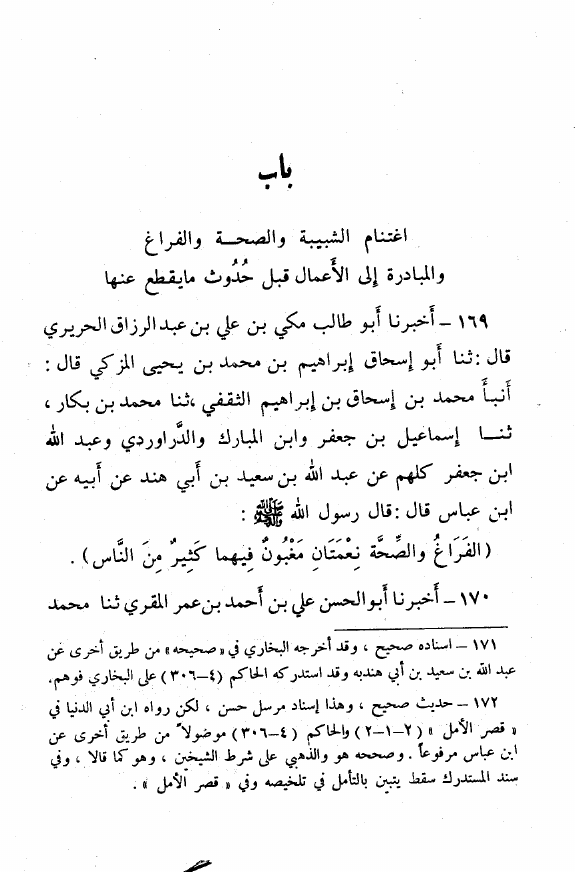 باب
اغتنام الشبيبة والصحـة والفراغ
والمبادرة إلى الأَعمال قبل حُدُوث مايقطع عنها
١٦٩ – أَخبرنا أَبو طالب مكي بن علي بن عبد الرزاق الحريري
قال : ثنا أَبو إسحاق إبراهيم بن محمد بن يحيى المزكي قال :
أَنبأَ محمد بن إسحاق بن إبراهيم الثقفي ، ثنا محمد بن بكار ،
ثنـا إسماعيل بن جعفر وابن المبارك والدَّراوردي وعبد الله
ابن جعفر كلهم عن عبد الله بن سعيد بن أَبي هند عن أَبيه عن
ابن عباس قال : قال رسول الله ﷺ :
( الفَرَاغُ والصِّحَّة نِعْمَتَانِ مَغْبُونٌ فِيهما كَثِيرٌ مِنَ النَّاس ) .
١٧٠ – أَخبرنا أَبوالحسن علي بن أَحمد بن عمر المقري ثنا محمد
١٧١ – اسناده صحيح ، وقد أخرجه البخاري في « صحيحه » من طريق أخرى عن
عبد الله بن سعيد بن أبي هندبه وقد استدركه الحاكم (٤–٣٠٦) على البخاري فوهم.
١٧٢ – حديث صحيح ، وهذا إسناد مرسل حسن ، لكن رواه ابن أبي الدنيا في
« قصر الأمل » (٢–١–٢) والحاكم (٤–٣٠٦) موضولاً من طريق أخرى عن
ابن عباس مرفوعاً . وصححه هو والذهبي على شرط الشيخين ، وهو كما قالا ، وفي
سند المستدرك سقط يتبين بالتأمل في تلخيصه وفي « قصر الأمل » .